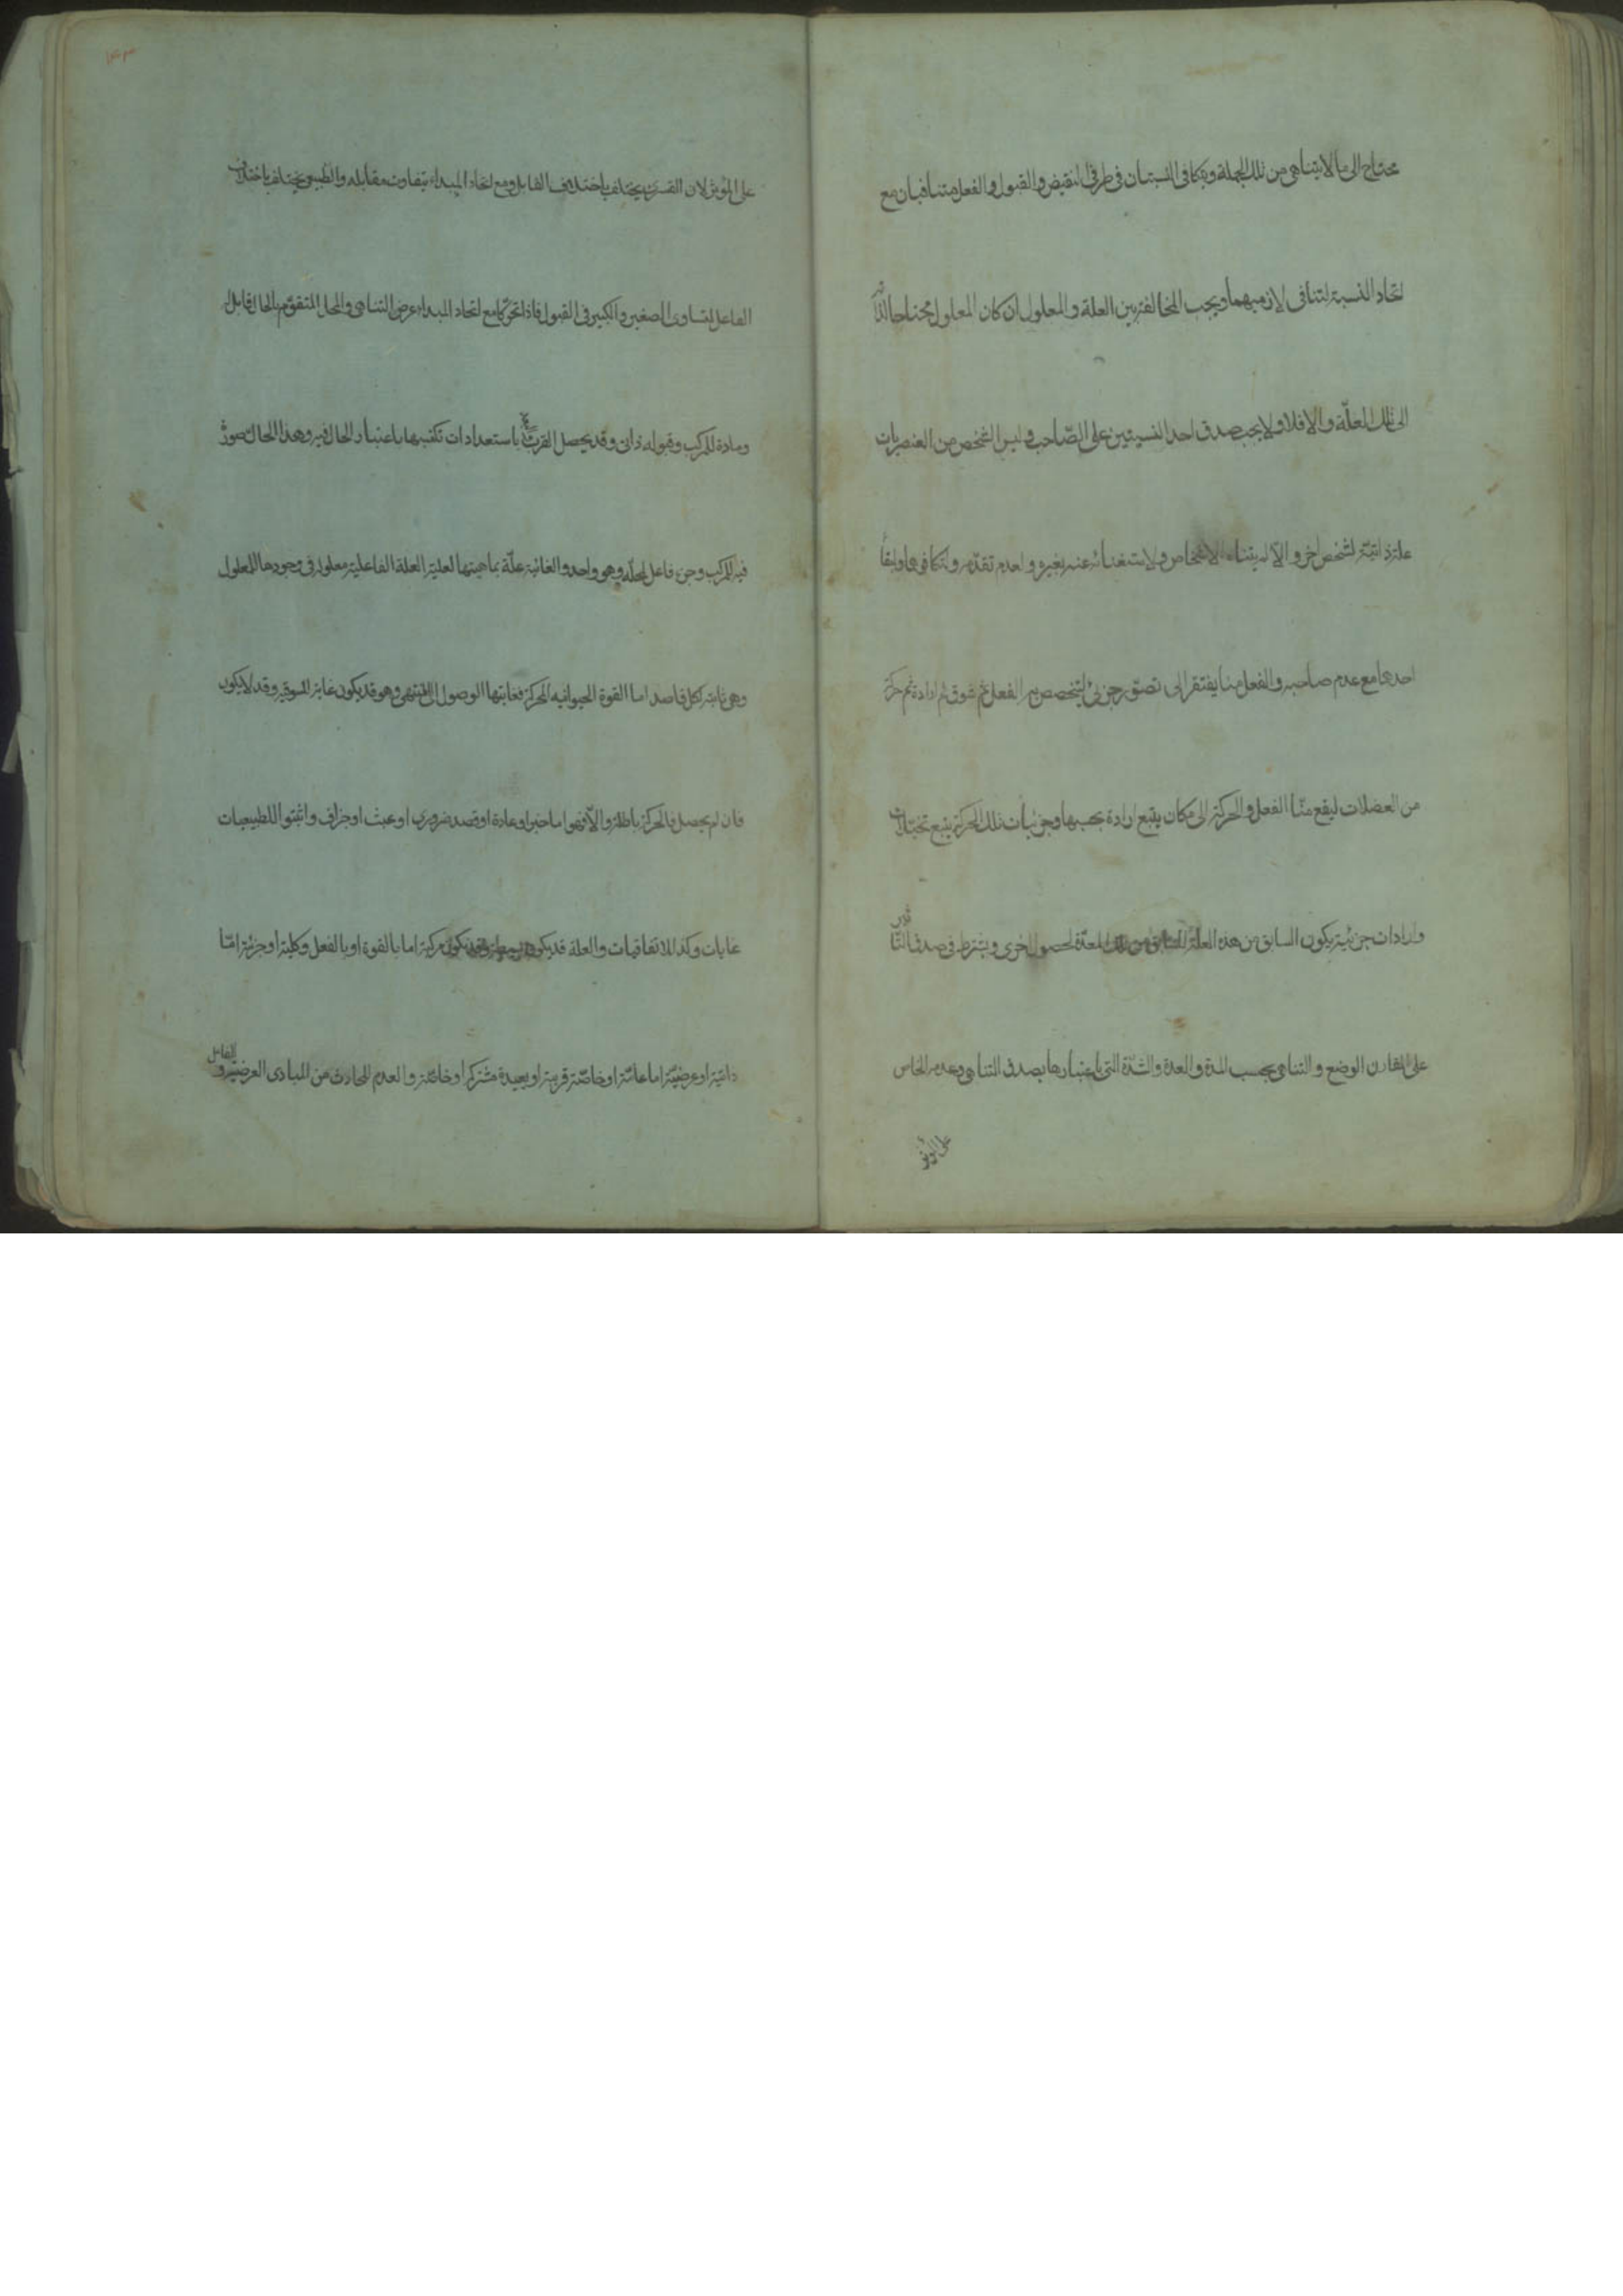 محتاج الى ما لا يتناهى من تلك الجملة ويتكافى النسبتان فى طرفى النقيض والقبول والفعل متنافيان مع
اتحاد النسبة لتنافى لازميهما ويجب المخالفة بين العلة والمعلول ان كان المعلول محتاجا لذاته
الى تلك العلّة والا فلا ولا يجب صدق احد النسبتين على الصّاحب وليس الشخص من العنصريات
علة ذاتيّة لشخص اخر والّا لم يتناه الاشخاص ولاستغنائه عنه بغيره ولعدم تقدّمه ولتكافيهما ولبقاء
احدهما مع عدم صاحبه والفعل منا يفتقر الى تصوّر جزئى ليتخصص به الفعل ثم شوق ثم ارادة ثم حركة
من العضلات ليقع منّا الفعل والحركة الى مكان يتبع ارادة بحسبها وجزئيات تلك الحركة يتبع تخيّلات
وارادات جزئية يكون السابق من هذه العلة المعدّة لحصول اخرى ويشترط فى صدق التأثير
على المقارن الوضع والتناهى بحسب المدة والعدة والشدّة التى باعتبارها يصدق التناهى وعدمه الخاص
على المؤثر
على المؤثر لان القسرى يختلف باختلاف القابل ومع اتحاد المبداء يتفاوت مقابله والطبيعى يختلف باختلاف
الفاعل لتساوى الصغير والكبير فى القبول فاذا تحركا مع اتحاد المبداء عرض التناهى والمحل المتقوّم بالحال قابل له
ومادة للمركب وقبوله ذاتى وقد يحصل القرب باستعدادات تكتسبها باعتبار الحال فيه وهذا الحال صورة
فيه للمركب وجزء فاعل لمحله وهو واحد والغائية علّة بماهيتها لعلية العلة الفاعلية معلولة فى وجودها للمعلول
وهى ثابتة لكل قاصد اما القوة الحيوانيه المحركة فغايتها الوصول الى المنتهى وهو قد يكون غاية الشوقية وقد لا يكون
فان لم يحصل فالحركة باطلة والّا فهو اما خير او عادة او قصد ضرورى او عبث او جزاف واثبتوا للطبيعيات
غايات وكذا للاتفاقيات والعلة قد يكون بسيطة وقد يكون مركبة اما بالقوة او بالفعل وكلية او جزئية امّا
ذاتية او عرضيّة اما عامّة او خاصّة قريبة او بعيدة مشتركة او خاصّة والعدم للحادث من المبادى العرضيّة والفاعل